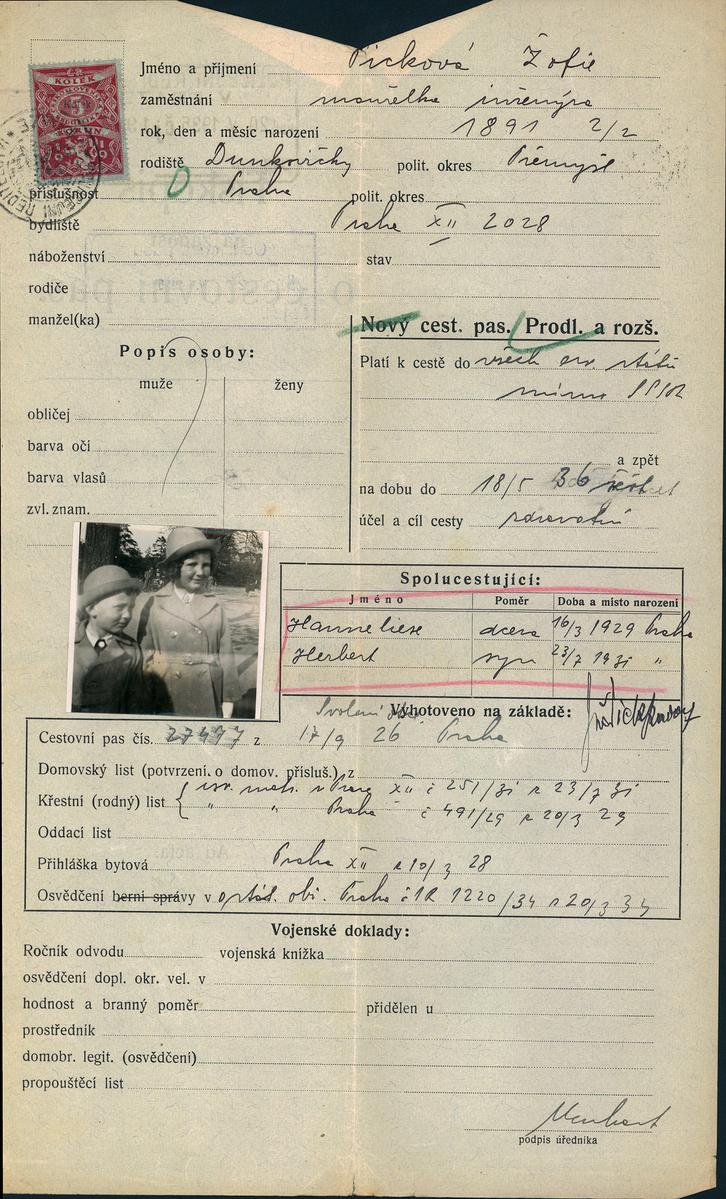 KOLEK
KORUN
Jméno a příjmení Picková Žofie
zaměstnání manželka inženýra
rok, den a měsíc narození 1891 2/2
rodiště Dunkovičky polit. okres Přemyšl
příslušnost Praha polit. okres
bydliště Praha XII 2028
náboženství stav
rodiče
manžel(ka)
Nový cest. pas. Prodl. a rozš.
Popis osoby:
muže ženy
obličej
barva očí
barva vlasů
zvl. znam.
Platí k cestě do všech ev. států
mimo SSSR
a zpět
na dobu do 18/5 36
účel a cíl cesty zdravotní
Spolucestující:
Jméno Poměr Doba a místo narození
Hanneliese dcera 16/3 1929 Praha
Herbert syn 23/7 1931 "
Vyhotoveno na základě:
Cestovní pas čís. 27477 z 17/9 26 Praha
Domovský list (potvrzení o domov. přísluš.) z
Křestní (rodný) list isr. mat. v Praze XII č 251/31 z 23/7 31
" " Praha č 491/29 z 20/3 29
Oddací list
Přihláška bytová Praha XII z 10/3 28
Osvědčení berní správy v obi. Praha č 1R 1220/34 z 20/3 34
Vojenské doklady:
Ročník odvodu vojenská knížka
osvědčení dopl. okr. vel. v
hodnost a branný poměr přidělen u
prostředník
domobr. legit. (osvědčení)
propouštěcí list
podpis úředníka